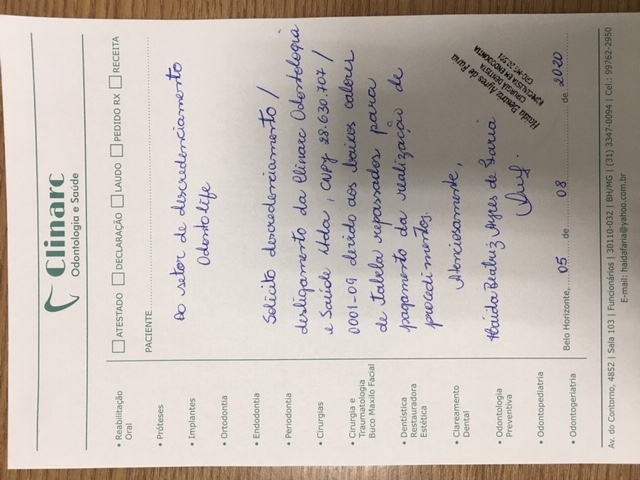 Clinarc
Odontologia e Saúde
ATESTADO DECLARAÇÃO LAUDO PEDIDO RX RECEITA
PACIENTE
Ao setor de descredenciamento
Odonto life
Solicito descredenciamento /
desligamento da Clinarc Odontologia
e Saúde Ltda, CNPJ 28.630.707/
0001-09 devido aos baixos valores
de tabela repassados para
pagamento da realização de
procedimentos.
Atenciosamente,
Haida Beatriz Ayres de Faria
Haida Beatriz Ayres de Faria
CIRURGIÃ DENTISTA
ESPECIALISTA EM ENDODONTIA
Belo Horizonte, 05 de 08 de 2020
• Reabilitação
Oral
• Próteses
• Implantes
• Ortodontia
• Endodontia
• Periodontia
• Cirurgias
• Cirurgia e
Traumatologia
Buco Maxilo Facial
• Dentística
Restauradora
Estética
• Clareamento
Dental
• Odontologia
Preventiva
• Odontopediatria
• Odontogeriatria
Av. do Contorno, 4852 | Sala 103 | Funcionários | 30110-032 | BH/MG | (31) 3347-0094 | Cel.: 99762-2950
E-mail: haidafaria@yahoo.com.br